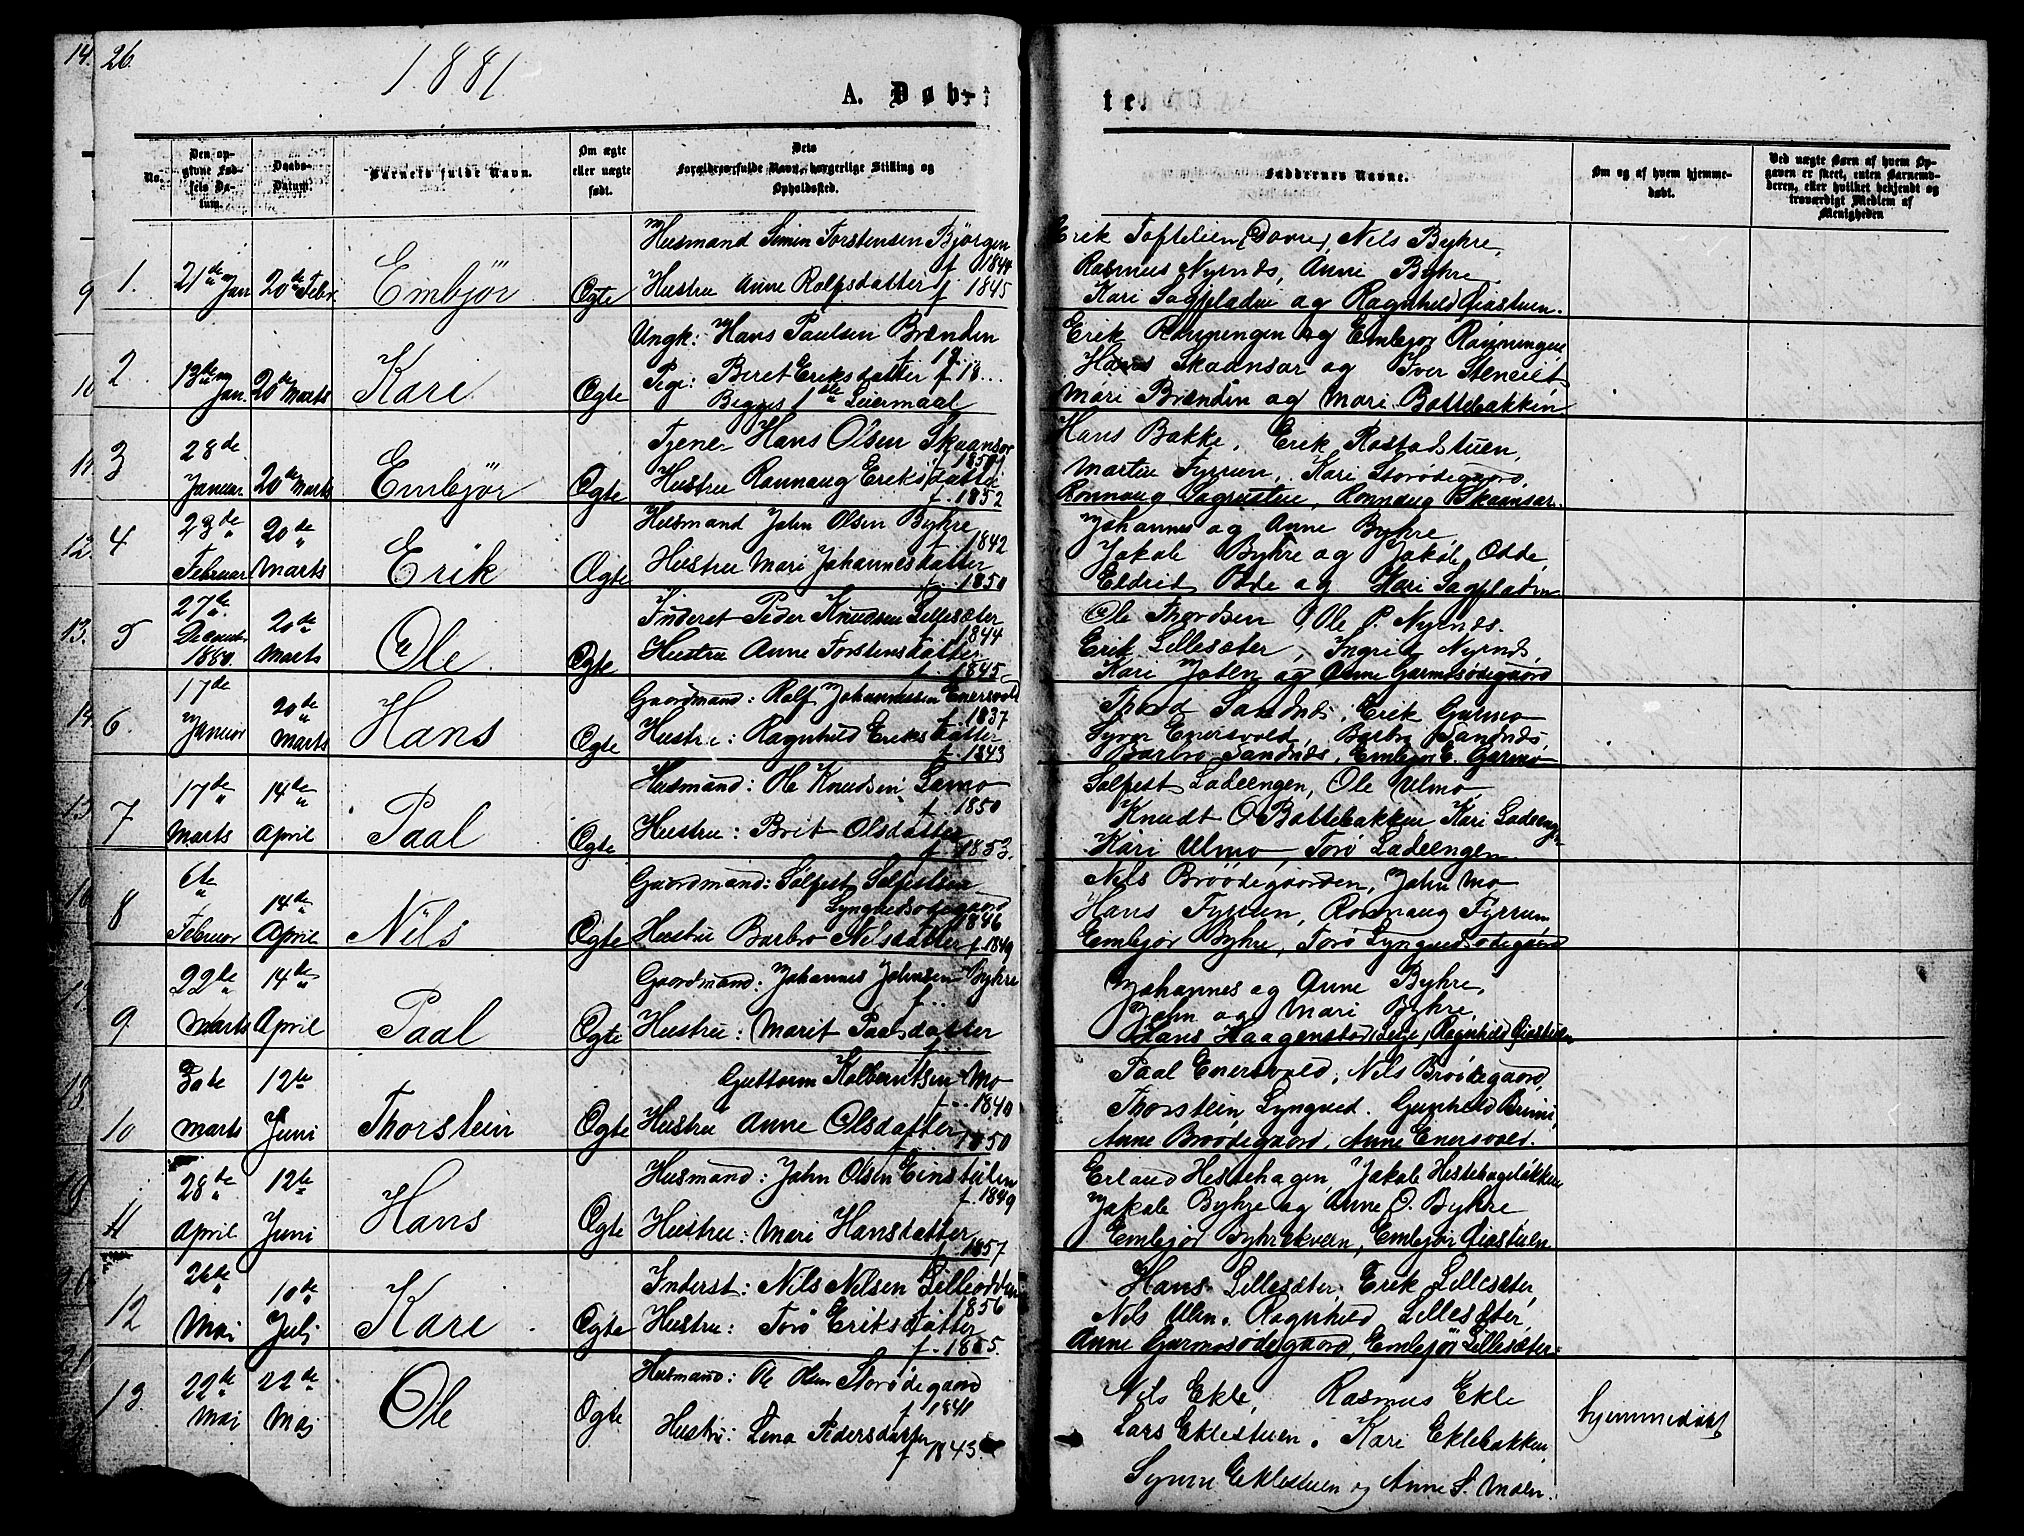 26.
1881
A. Døbte.
No.
Den opgivne Fødsels Datum.
Daabs-Datum.
Barnets fulde Navn.
Om ægte eller uægte født.
Dets Forældres fulde Navn, borgerlige Stilling og Opholdssted.
Faddernes Navne.
Om og af hvem hjemmedøbt.
Ved uægte Børn af hvem Opgaven er skeet, enten Barnemoderen, eller hvilket bekjendt og troværdigt Medlem af Menigheden
1. 21de Jan 20de Febr. Embjør Ægte
Husmand Simen Torstensen Bjørgen f 1844
Hustru Anne Rolfsdatter f 1845
Erik Toftelien (Dovre), Nils Byhre,
Rasmus Nyrnds, Anne Byhre
Kari Sagfladen og Ragnhild Giastuen.
2 13de Jan. 20de Marts Kari Ægte
Ungk: Hans Paulsen Brænden f. 18...
Pige: Beret Eriksdatter f 18...
Begges 1ste Leiermaal
Erik Rønningen og Embjør Rønningen
Hans Skaansar og Iver Steneie
Mari Brænden og Mari Bottebakken
3 28de Januar 20de Marts Embjør Ægte
Tjene- Hans Olsen Skaansar f 1850
Hustru Rannaug Eriksdatter f. 1852
Hans Bakke, Erik Rostadstuen,
Martin Fyruen, Kari Storødegaard,
Ronnaug Skaansar.
4 23de Februar 20de Marts Erik Ægte
Husmand John Olsen Byhre f 1842
Hustru Mari Johannesdatter f. 1850
Johannes og Anne Byhre,
Jakob Byhre og Jakob Odde,
Eldrid Odde og Kari Sagfladen
5 27de Decembr. 1880. 20de Marts Ole Ægte
Inderst Peder Knudsen Lillesæter f. 1844
Hustru Anne Torstensdatter f. 1845
Ole Thordsen, Ole P. Nyrnds.
Erik Lillesæter, Ingrid Nyrnds,
Kari Joten og Anne Garmosødegaard
6. 17de Januar 20de Marts Hans Ægte
Gaardmand: Rolf Johannessen Enersvold f. 1837
Hustru: Ragnhild Eriksdatter f. 1843
Thord Sandnds, Erik Garmo
Syver Enersvold, Barbro Sandnds,
Barbro Sandnds, Embjør E. Garmo
7 17de Marts 14de April Paal Ægte
Husmand: Ole Knudsen Lemo f 1850
Hustru: Brit Olsdatter f. 1853.
Solfest Ladeengen, Ole Ulmo,
Knudt O Bottebakken Kari Ladeengen
Kari Ulmo, Torø Ladeengen
8 6te Februar 14de April Nils Ægte
Gaardmand: Solfest Solfestsen
Lyngvedsødegaard f 1846
Hustru Barbro Nilsdatter f. 1849
Nils Brødegaarden, John Mo
Hans Fyruen, Ronnaug Fyruen
Embjør Byhre, Torø Lyngvedsødegaard
9. 22de Marts 14de April Paal Ægte
Gaardmand: Johannes Johnsen Byhre f...
Hustru: Marit Paalsdatter f...
Johannes og Anne Byhre,
John og Mari Byhre,
Hans Haagenstad (Lesje), Ragnhild Giastuen
10 30te Marts 12te Juni Thorstein Ægte
Guttorm Kolbentsen Mo f. 1840
Hustru Anne Olsdatter 1850
Paal Enersvold, Nils Brødegaard,
Thorstein Lyngved. Gunhild Brimi,
Anne Brødegaard, Anne Enersvold.
11 28de April 12te Juni Hans Ægte
Husmand: John Olsen Einstulen f. 1849
Hustru: Mari Hansdatter f. 1857
Erland Hestehagen, Jakob Hestehageløkken
Jakob Byhre og Anne O. Byhre
Embjør Byhrekvern, Embjør Giastuen
12 26de Mai 10de Juli Kari Ægte
Inderst: Nils Nilsen Lilleodden f. 1856
Hustru: Torø Eriksdatter f. 1855.
Hans Lillesæter, Erik Lillesæter,
Nils Ulen. Ragnhild Lillesæter,
Anne Garmosødegaard, Embjør Lillesæter.
13. 22de Mai 22de Maj Ole Ægte
Husmand: Ole Olsen Storødegaard f 1841
Hustru: Lena Pedersdatter f 1843.
Nils Ekle, Rasmus Ekle
Lars Eklestuen. Kari Eklebakken,
Synn Eklestuen og Anne S. Moen.
hjemmedøbt